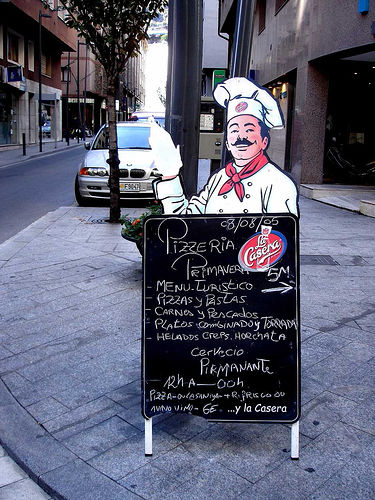 08/08/05
PizzeRia
PRiMAVERA
La Casera
5M
- MENU-TURiSTiCO
- PiZZAS y PASTAS
- CARNES y PESCADOS
- PLATOS COMBINADO y TORRADA
- HELADOS CREPS. HORCHATA
CERVicio
PiRMANANTE
12H A — 00H
PizzA
6E ...y la Casera